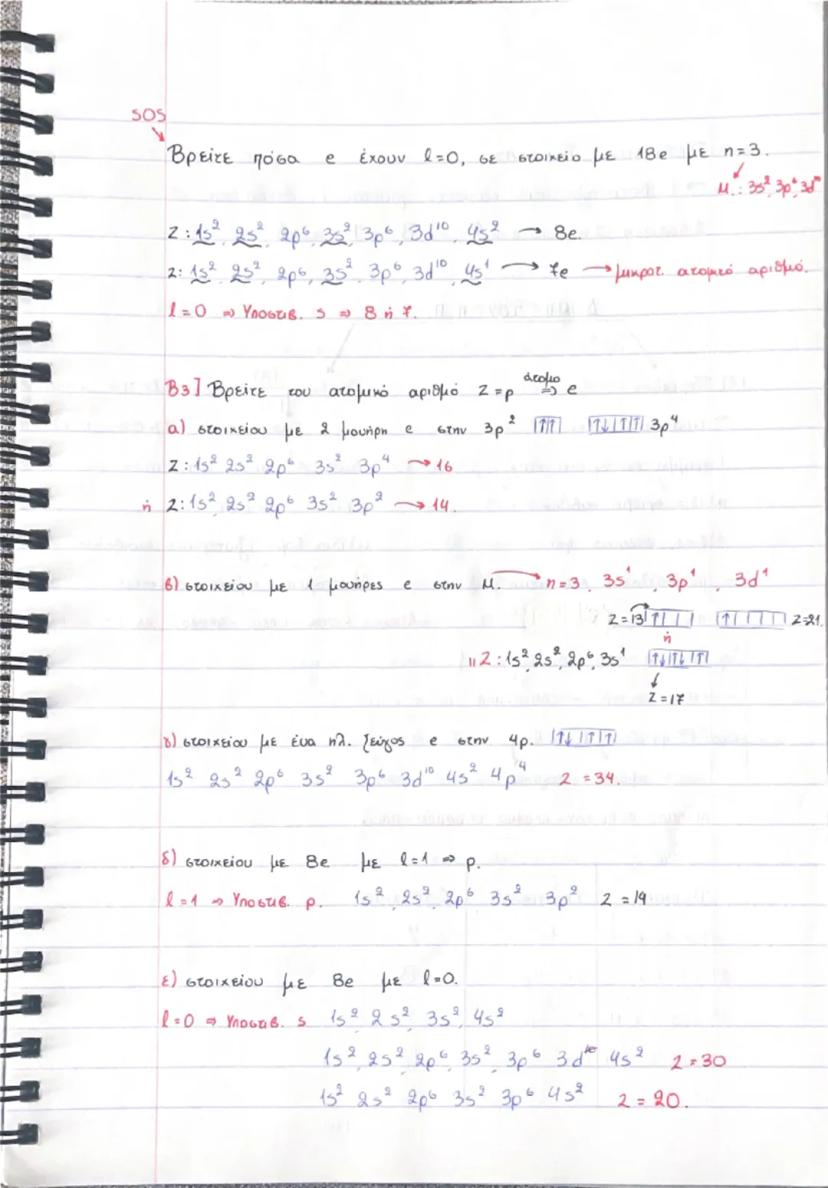 SOS
Βρείτε πόσα e έχουν l=0, σε στοιχείο με 18e με n=3.
Μ.: 3s², 3p⁶, 3d¹⁰
Z: 1s², 2s², 2p⁶, 3s², 3p⁶, 3d¹⁰, 4s² → 8e.
Z: 1s², 2s², 2p⁶, 3s², 3p⁶, 3d¹⁰, 4s¹ → 7e → μικροτ. ατομικό αριθμό.
l=0 ⇒ Υποστιβ. s ⇒ 8 ή 7.
Β3] Βρείτε τον ατομικό αριθμό Z=p άτομο ⇒ e
α) στοιχείου με 2 μονήρη e στην 3p² |↑|↑| | |↑↓|↑|↑| 3p⁴
Z: 1s² 2s² 2p⁶ 3s² 3p⁴ → 16
ή Z: 1s², 2s² 2p⁶ 3s² 3p² → 14.
β) στοιχείου με 1 μονήρες e στην Μ. → n=3. 3s¹, 3p¹, 3d¹
Z=13 |↑| | | |↑| | | | | Z=21.
ή
11 Z: 1s², 2s², 2p⁶, 3s¹ |↑↓|↑↓|↑|
↓
Z=17
γ) στοιχείου με ένα ηλ. ζεύγος e στην 4p. |↑↓|↑|↑|
1s² 2s² 2p⁶ 3s² 3p⁶ 3d¹⁰ 4s² 4p⁴ Z=34.
δ) στοιχείου με 8e με l=1 ⇒ p.
l=1 ⇒ Υποστιβ. p. 1s², 2s², 2p⁶ 3s² 3p² Z=14
ε) στοιχείου με 8e με l=0.
l=0 ⇒ Υποστιβ. s 1s² 2s², 3s², 4s²
1s², 2s², 2p⁶, 3s², 3p⁶ 3d¹⁰ 4s² Z=30
1s² 2s² 2p⁶ 3s² 3p⁶ 4s² Z=20.